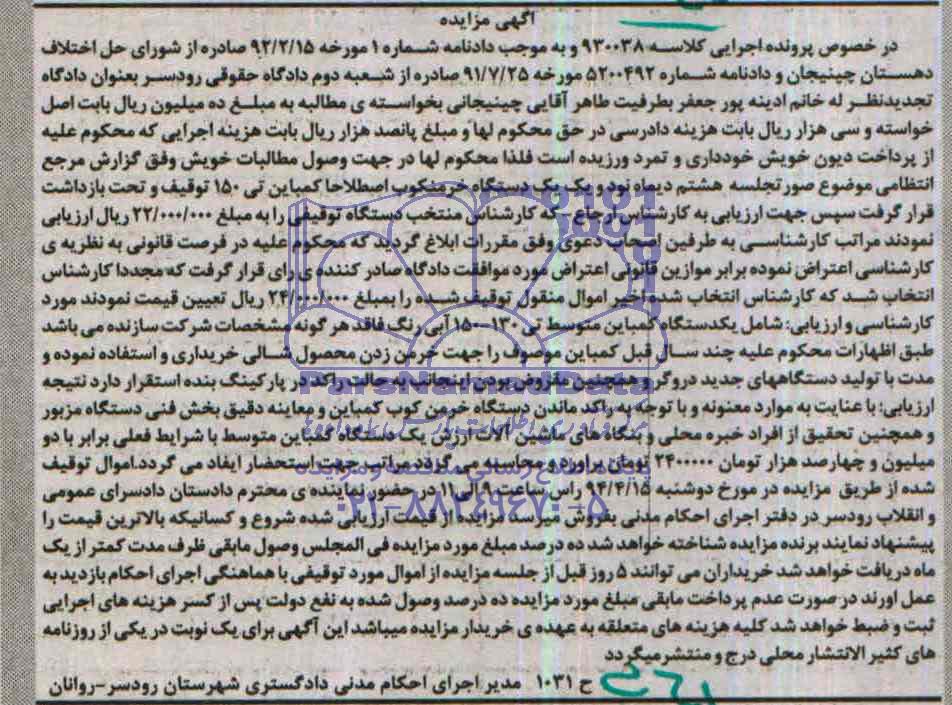 آگهی مزایده
در خصوص پرونده اجرایی کلاسه ۹۳۰۰۳۸ و به موجب دادنامه شماره ۱ مورخه ۹۲/۲/۱۵ صادره از شورای حل اختلاف
دهستان چینیجان و دادنامه شماره ۵۲۰۰۴۹۲ مورخه ۹۱/۷/۲۵ صادره از شعبه دوم دادگاه حقوقی رودسر بعنوان دادگاه
تجدیدنظر له خانم ادینه پور جعفر بطرفیت طاهر آقایی چینیجانی بخواسته ی مطالبه به مبلغ ده میلیون ریال بابت اصل
خواسته و سی هزار ریال بابت هزینه دادرسی در حق محکوم لها و مبلغ پانصد هزار ریال بابت هزینه اجرایی که محکوم علیه
از پرداخت دیون خویش خودداری و تمرد ورزیده است فلذا محکوم لها در جهت وصول مطالبات خویش وفق گزارش مرجع
انتظامی موضوع صورتجلسه هشتم دیماه نود و یک یک دستگاه خرمنکوب اصطلاحا کمباین تی ۱۵۰ توقیف و تحت بازداشت
قرار گرفت سپس جهت ارزیابی به کارشناس ارجاع - که کارشناس منتخب دستگاه توقیفی را به مبلغ ۲۲/۰۰۰/۰۰۰ ریال ارزیابی
نمودند مراتب کارشناسی به طرفین اصحاب دعوی وفق مقررات ابلاغ گردید که محکوم علیه در فرصت قانونی به نظریه ی
کارشناسی اعتراض نموده برابر موازین قانونی اعتراض مورد موافقت دادگاه صادر کننده ی رای قرار گرفت که مجددا کارشناس
انتخاب شد که کارشناس انتخاب شده اخیر اموال منقول توقیف شده را بمبلغ ۲۴/۰۰۰/۰۰۰ ریال تعیین قیمت نمودند مورد
کارشناسی و ارزیابی: شامل یکدستگاه کمباین متوسط تی ۱۳۰-۱۵۰ آبی رنگ فاقد هر گونه مشخصات شرکت سازنده می باشد
طبق اظهارات محکوم علیه چند سال قبل کمباین موصوف را جهت خرمن زدن محصول شالی خریداری و استفاده نموده و
مدت با تولید دستگاههای جدید دروگر و همچنین مقروض بودن اینجانب به حالت راکد در پارکینگ بنده استقرار دارد نتیجه
ارزیابی: با عنایت به موارد معنونه و با توجه به راکد ماندن دستگاه خرمن کوب کمباین و معاینه دقیق بخش فنی دستگاه مزبور
و همچنین تحقیق از افراد خبره محلی و بنگاه های ماشین آلات ارزش یک دستگاه کمباین متوسط با شرایط فعلی برابر با دو
میلیون و چهارصد هزار تومان ۲۴۰۰۰۰۰ تومان براورد و محاسبه می گردد مراتب جهت استحضار ایفاد می گردد.اموال توقیف
شده از طریق مزایده در مورخ دوشنبه ۹۴/۴/۱۵ راس ساعت ۹ الی ۱۱ در حضور نماینده ی محترم دادستان دادسرای عمومی
و انقلاب رودسر در دفتر اجرای احکام مدنی بفروش میرسد مزایده از قیمت ارزیابی شده شروع و کسانیکه بالاترین قیمت را
پیشنهاد نمایند برنده مزایده شناخته خواهد شد ده درصد مبلغ مورد مزایده فی المجلس وصول مابقی ظرف مدت کمتر از یک
ماه دریافت خواهد شد خریداران می توانند ۵ روز قبل از جلسه مزایده از اموال مورد توقیفی با هماهنگی اجرای احکام بازدید به
عمل اورند در صورت عدم پرداخت مابقی مبلغ مورد مزایده ده درصد وصول شده به نفع دولت پس از کسر هزینه های اجرایی
ثبت و ضبط خواهد شد کلیه هزینه های متعلقه به عهده ی خریدار مزایده میباشد این آگهی برای یک نوبت در یکی از روزنامه
های کثیر الانتشار محلی درج و منتشر میگردد
ح ۱۰۳۱ مدیر اجرای احکام مدنی دادگستری شهرستان رودسر-روانان
ParsNamadData
۰۲۱-۸۸۳۴۹۶۷۰-۵